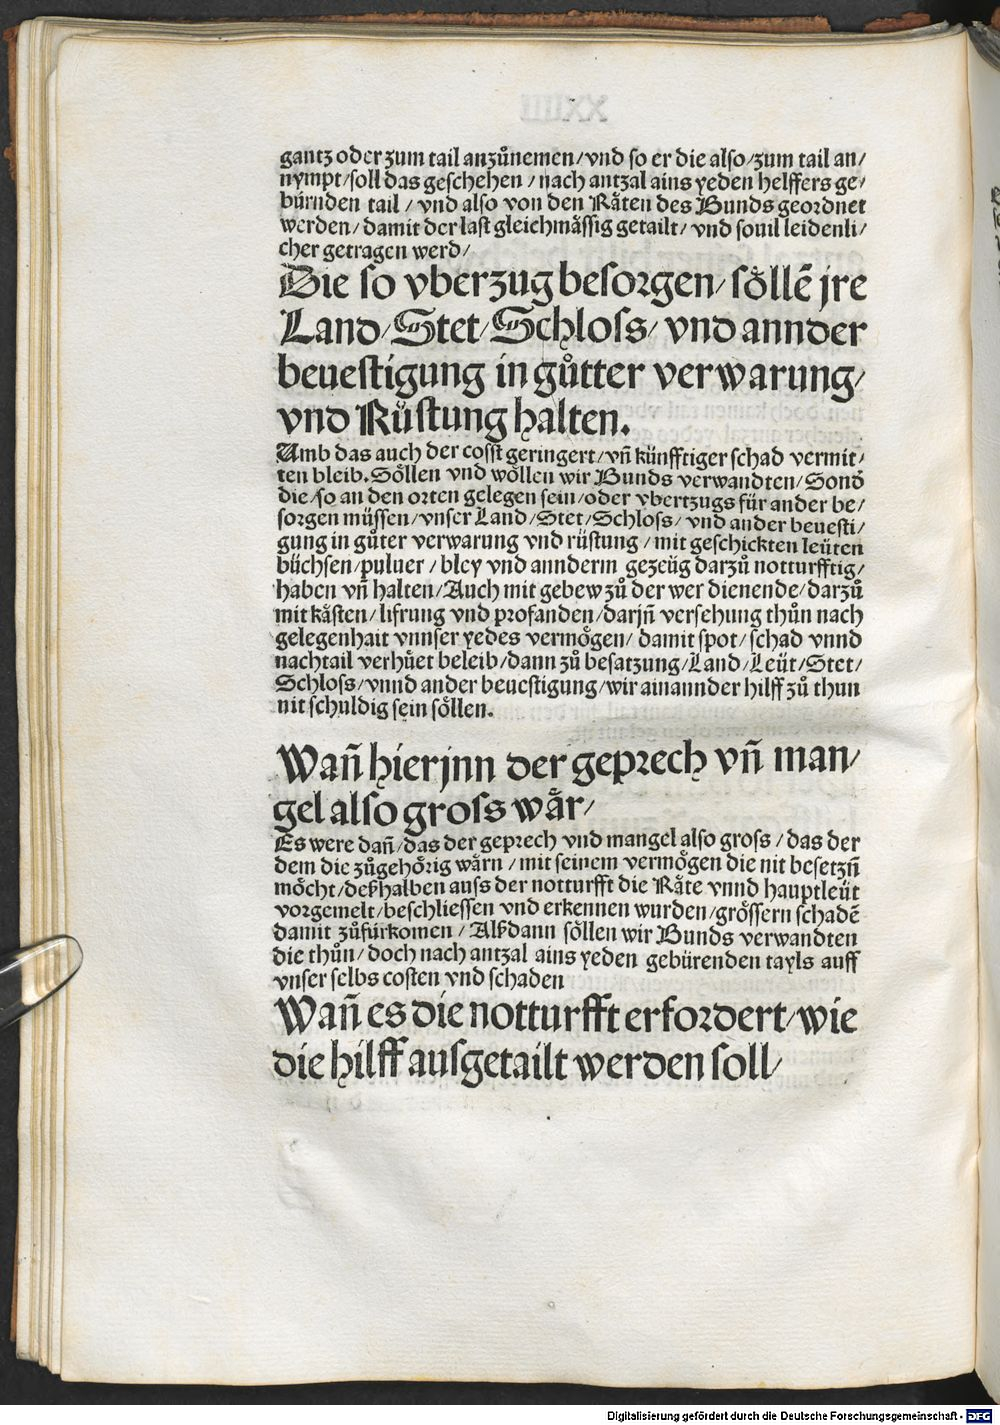 gantz oder zum tail anzůnemen/vnd so er die also/zum tail an/
nympt/soll das geschehen/nach antzal ains yeden helffers ge/
bürnden tail/vnd also von den Räten des Bunds geordnet
werden/damit der last gleichmässig getailt/vnd souil leidenli/
cher getragen werd/
Die so vberzug besorgen/sőllē jre
Land/Stet/Schloss/vnd annder
beuestigung in gůtter verwarung/
vnd Rüstung halten.
Umb das auch der cosst geringert/vn̄ künfftiger schad vermit/
ten bleib. Sőllen vnd wőllen wir Bunds verwandten/Sond̄
die/so an den orten gelegen sein/oder vbertzugs für ander be/
sorgen müssen/vnser Land/Stet/Schloss/vnd ander beuesti/
gung in gůter verwarung vnd rüstung/mit geschickten leüten
büchsen/puluer/bley vnd annderm gezeüg darzů notturfftig/
haben vn̄ halten/Auch mit gebew zů der wer dienende/darzů
mit kåsten/lifrung vnd profanden/darjn̄ versehung thůn nach
gelegenhait vnnser yedes vermőgen/damit spot/schad vnnd
nachtail verhüet beleib/dann zů besatzung/Land/Leüt/Stet/
Schloss/vnnd ander beuestigung/wir ainannder hilff zů thun
nit schuldig sein sőllen.
Wan̄ hierjnn der geprech vn̄ man/
gel also gross wår/
Es were dan̄/das der geprech vnd mangel also gross/das der
dem die zůgehőrig wårn/mit seinem vermőgen die nit besetzn̄
mőcht/deßhalben auss der notturfft die Råte vnnd hauptleüt
vorgemelt/beschliessen vnd erkennen wurden/grőssern schadē
damit zůfürkomen/Alßdann sőllen wir Bunds verwandten
die thůn/doch nach antzal ains yeden gebürenden tayls auff
vnser selbs costen vnd schaden
Wan̄ es die notturfft erfordert/wie
die hilff ausgetailt werden soll/
Digitalisierung gefördert durch die Deutsche Forschungsgemeinschaft - DFG